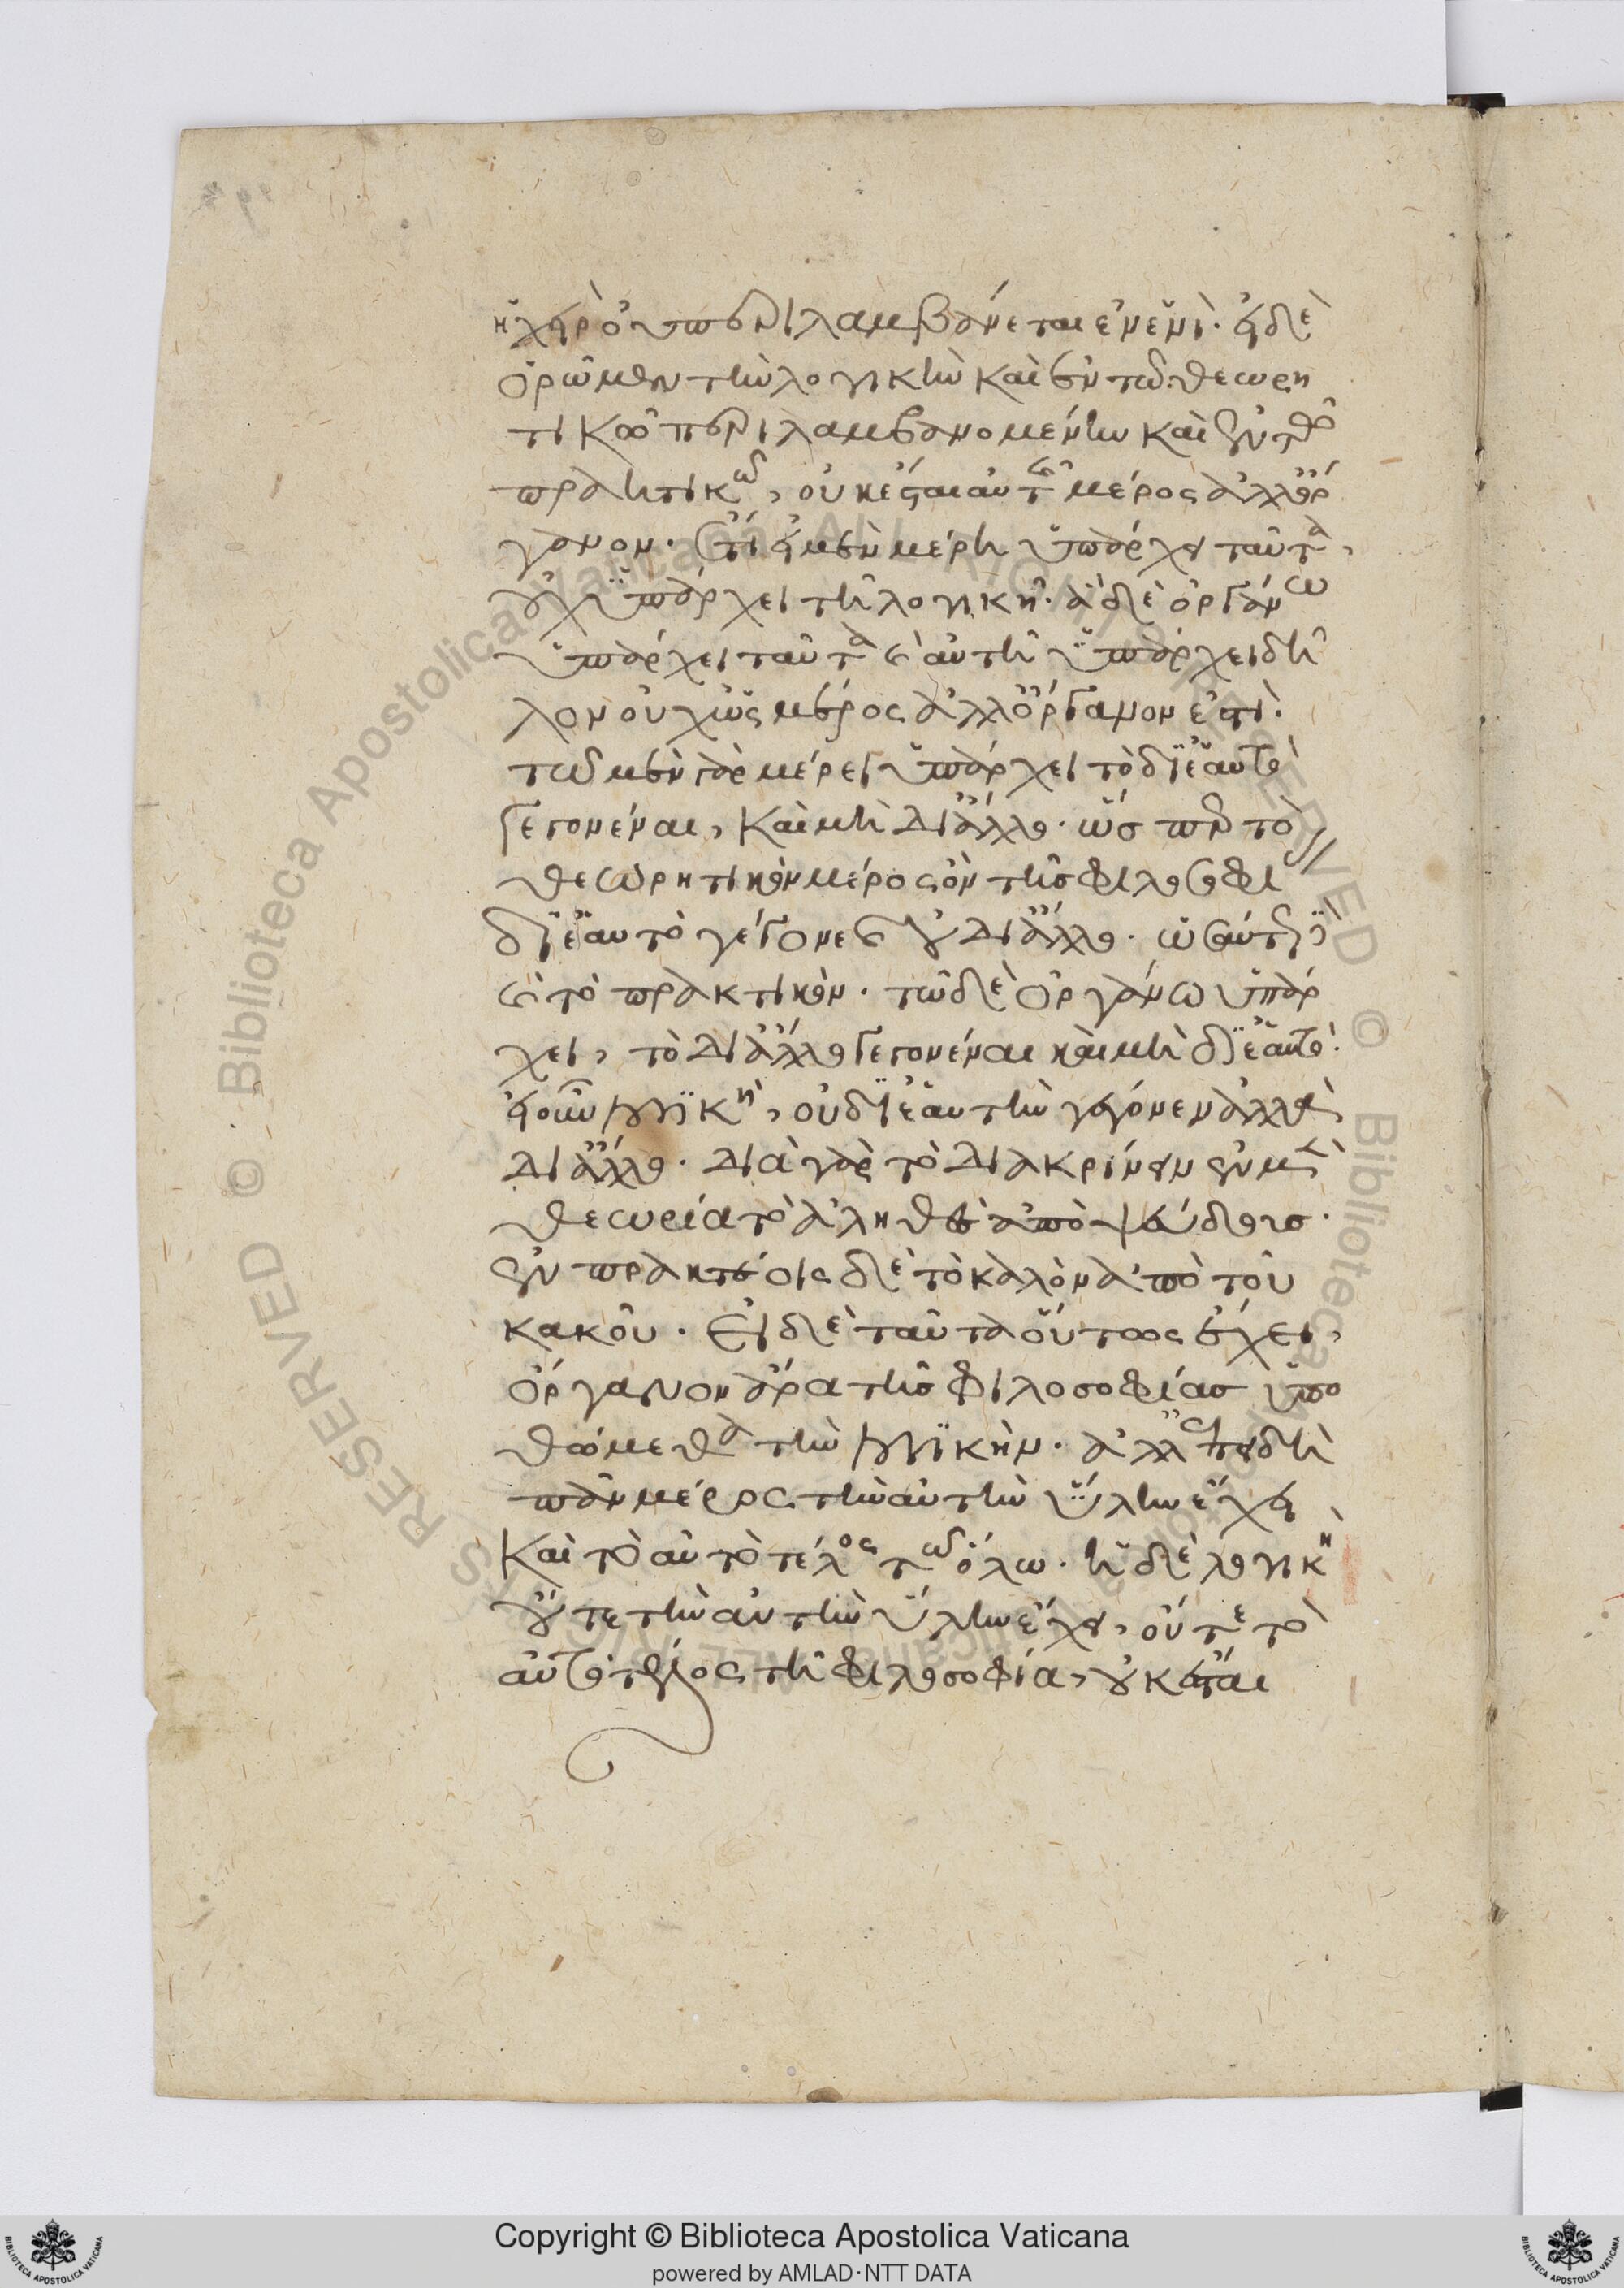 ἡ χεὶρ οὐ περιλαμβάνεται ἐν ἑνί· εἰ δὲ
ὁρῶμεν τὴν λογικὴν καὶ ἐν τῶ θεωρη
τικῶ περιλαμβανομένην καὶ ἐν τῶ
πρακτικῶ, οὐκ ἔσται αὐτῶν μέρος ἀλλ' ὄρ
γανον. ἔτι εἰ μὲν μέρη ὑπάρχει ταῦτα,
οὐχ ὑπάρχει τῆ λογικῆ· ἃ δὲ ὀργάνω
ὑπάρχει ταῦτα καὶ αὐτῆ ὑπάρχει δῆ
λον οὐχ ὡς μέρος ἀλλ' ὄργανον ἐστί.
τῶ μὲν γὰρ μέρει ὑπάρχει τὸ δι' ἑαυτὸ
γεγονέναι, καὶ μὴ δι' ἄλλο· ὥσπερ τὸ
θεωρητικὸν μέρος ὂν τῆς φιλοσοφίας
δι' ἑαυτὸ γέγονε καὶ οὐ δι' ἄλλο. ὡσαύτως
καὶ τὸ πρακτικόν. τῶ δὲ ὀργάνω ὑπάρ
χει, τὸ δι' ἄλλο γεγονέναι καὶ μὴ δι' ἑαυτό.
ἡ οὖν λογικὴ, οὐ δι' ἑαυτὴν γέγονεν ἀλλὰ
δι' ἄλλο. διὰ γὰρ τὸ διακρίνειν ἐν μὲν
θεωρία τὸ ἀληθὲς ἀπὸ ψεύδους.
ἐν πρακτέοις δὲ τὸ καλὸν ἀπὸ τοῦ
κακοῦ. Εἰ δὲ ταῦτα οὕτως ἔχει,
ὄργανον ἄρα τῆς φιλοσοφίας ὑπο
θώμεθα τὴν λογικήν. ἀλλ' ἐπειδὴ
πᾶν μέρος τὴν αὐτὴν ὕλην ἔχει
καὶ τὸ αὐτὸ τέλος τῶ ὅλω. ἡ δὲ λογικὴ
οὔτε τὴν αὐτὴν ὕλην ἔχει, οὔτε τὸ
αὐτὸ τέλος τῆ φιλοσοφία, οὐκ ἔσται